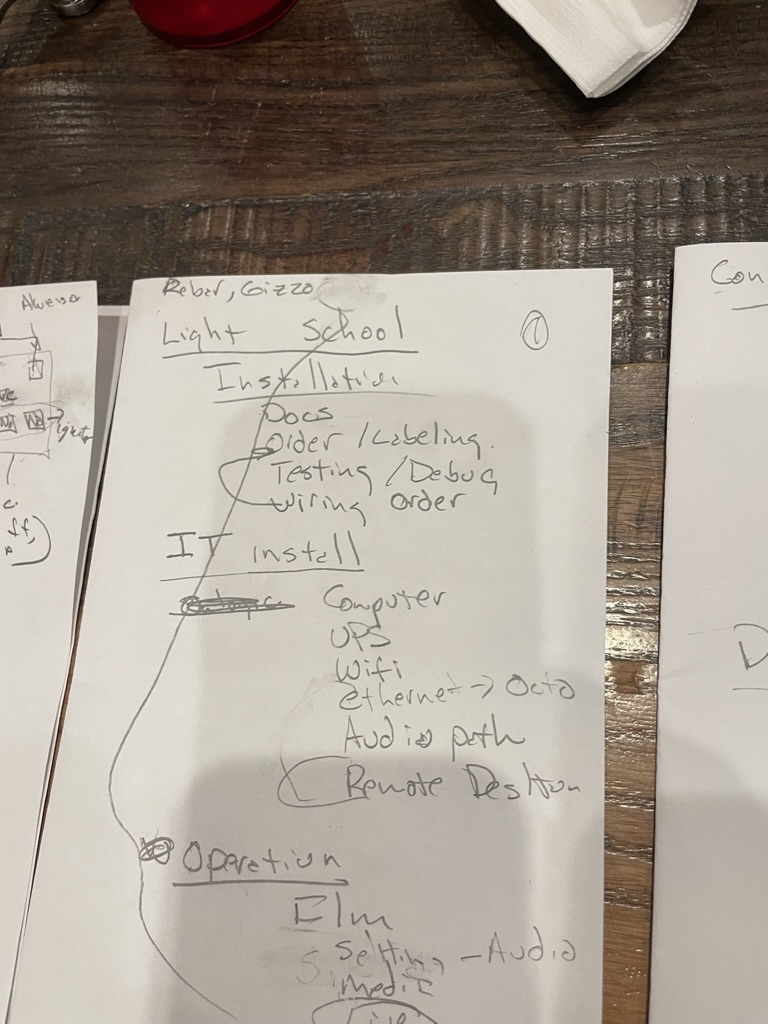 Reber, Gizzo
Light School
1
Installation
Docs
Order / Labeling
Testing / Debug
Wiring order
IT install
Computer
UPS
Wifi
ethernet → Octo
Audio path
Remote Desktop
Operation
Elm
Setting - Audio
Media
Live
Con
D